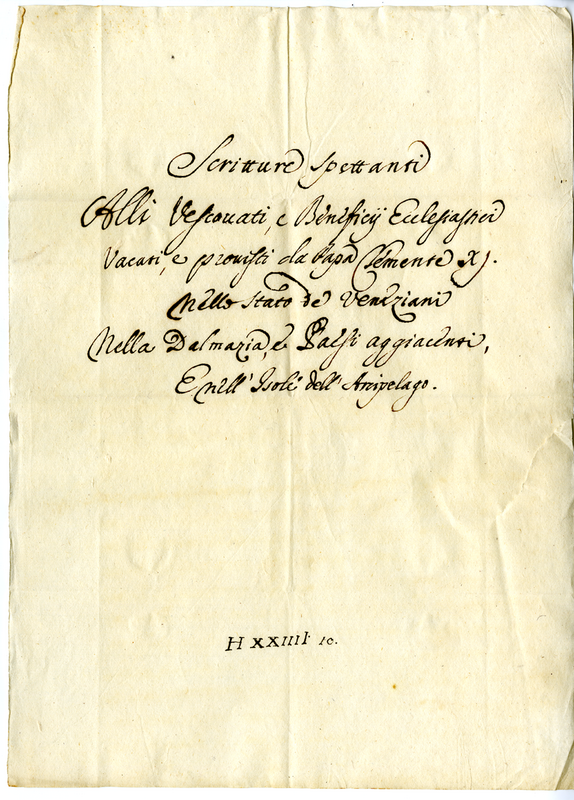 Scritture spettanti
Alli Vescouati, e Beneficij Ecclesiastici
Vacati, e prouisti da Papa Clemente XJ.
nello stato de' Veneziani
Nella Dalmazia, e Paesi aggiacenti,
E nell' Isole dell' Arcipelago.
H XXIIII 10.